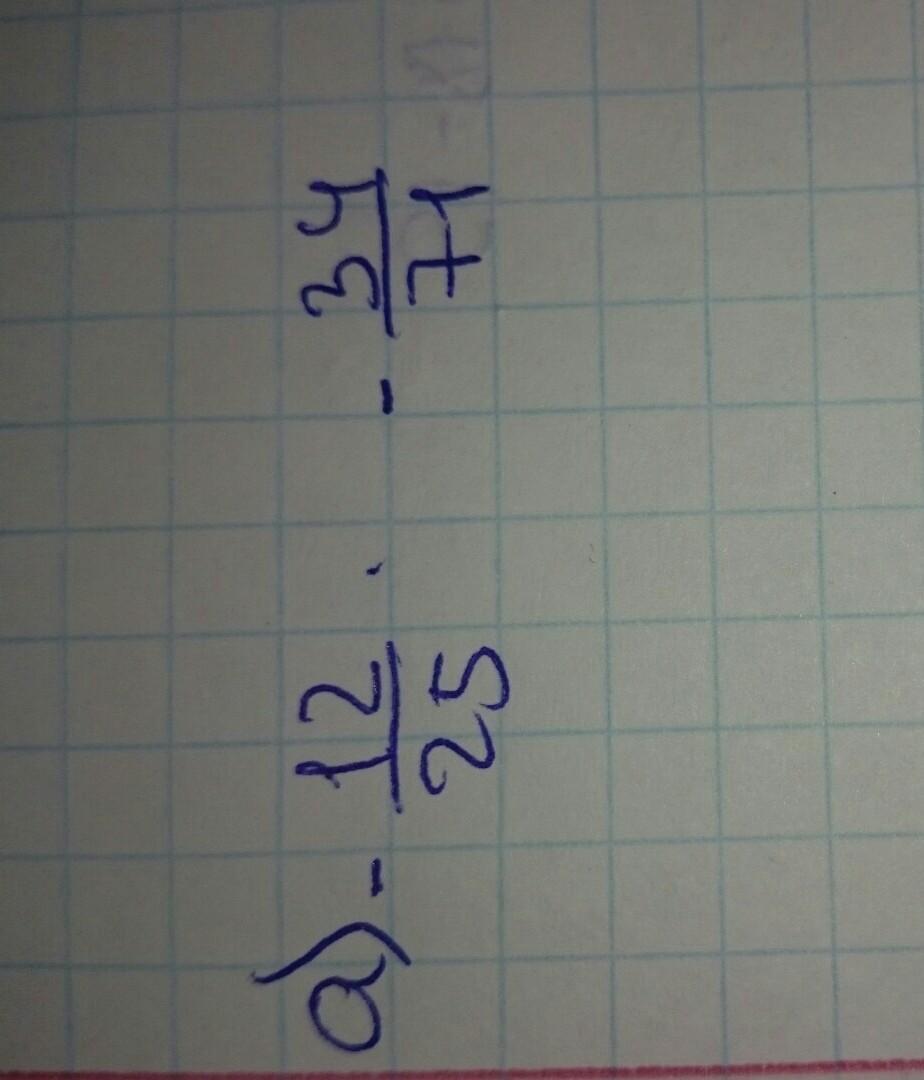 а) - 12/25 . - 34/71